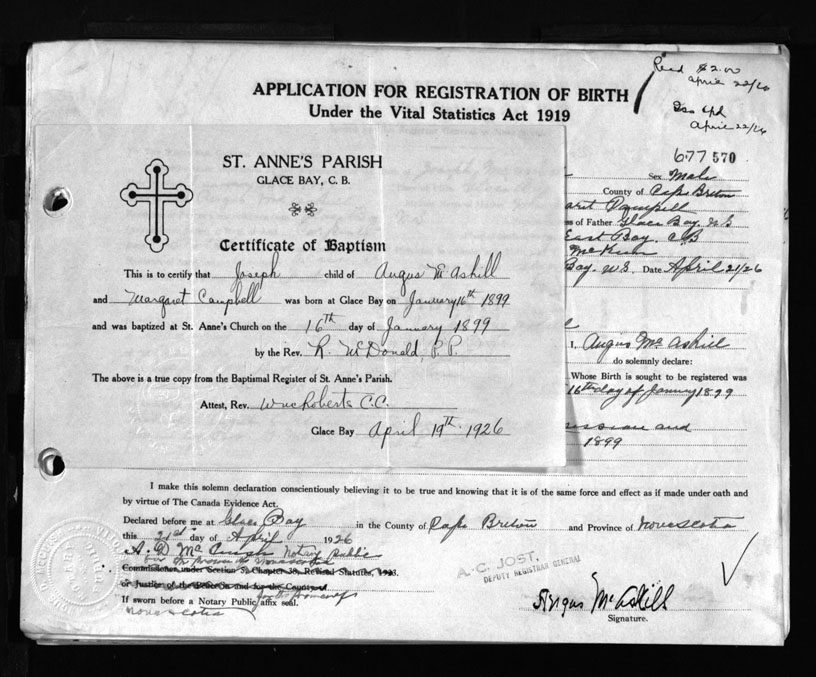 Recd $2.00
April 22/26
April 22/26
APPLICATION FOR REGISTRATION OF BIRTH
Under the Vital Statistics Act 1919
677570
ST. ANNE'S PARISH
GLACE BAY, C. B.
Certificate of Baptism
This is to certify that Joseph child of Angus McAskill
and Margaret Campbell was born at Glace Bay on January 16th 1899
and was baptized at St. Anne's Church on the 16th day of January 1899
by the Rev. R. McDonald P.P.
The above is a true copy from the Baptismal Register of St. Anne's Parish.
Attest, Rev. Wm Roberts C.C.
Glace Bay April 19th 1926
Sex Male
County of Cape Breton
aret Campbell
ss of Father Glace Bay. N.S
East Bay. C.B
Bay. N.S. Date April 21/26
I, Angus McAskill
do solemnly declare:
Whose Birth is sought to be registered was
16th day of January 1899
and
1899
I make this solemn declaration conscientiously believing it to be true and knowing that it is of the same force and effect as if made under oath and
by virtue of The Canada Evidence Act.
Declared before me at Glace Bay in the County of Cape Breton and Province of Nova Scotia
this 21st day of April 1926
A. D. Mc Notary Public
Commissioner under Section 5, Chapter 38, Revised Statutes, 1923.
or Justice of the Peace in and for the County of
If sworn before a Notary Public affix seal.
Nova Scotia
A. C. JOST,
DEPUTY REGISTRAR GENERAL
Angus McAskill
Signature.